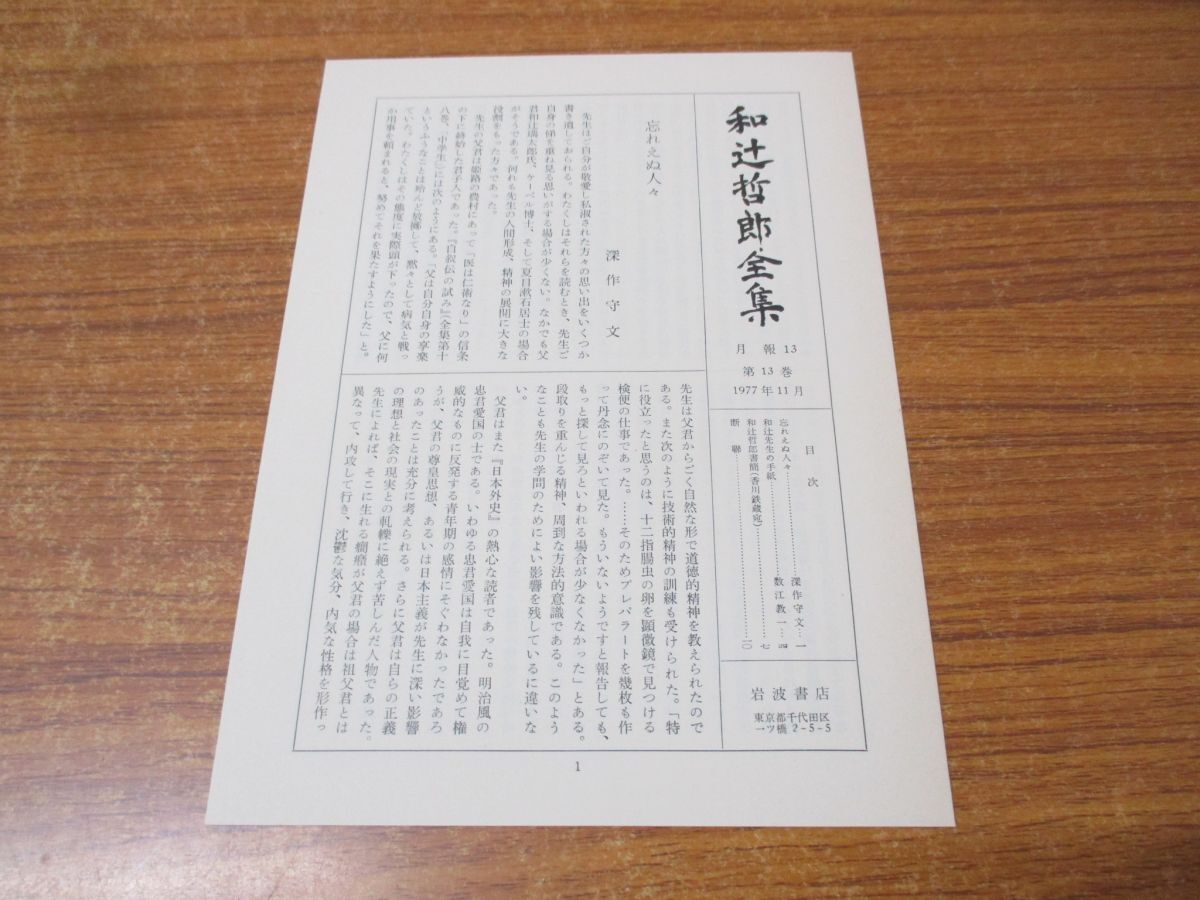 和辻哲郎全集
月報13
第13巻
1977年11月
目次
忘れえぬ人々……………………深作守文…一
和辻先生の手紙……………………数江教一…四
和辻哲郎書簡(香川鉄蔵宛)……………………七
断聯……………………一〇
岩波書店
東京都千代田区
一ツ橋 2-5-5
忘れえぬ人々
深作守文
先生はご自分が敬愛し私淑された方々の思い出をいくつか
書き遺しておられる。わたくしはそれらを読むとき、先生ご
自身の俤を重ね見る思いがする場合が少くない。なかでも父
君和辻瑞太郎氏、ケーベル博士、そして夏目漱石居士の場合
がそうである。何れも先生の人間形成、精神の展開に大きな
役割をもった方々であった。
先生の父君は姫路の農村にあって「医は仁術なり」の信条
の下に終始した君子人であった。『自叙伝の試み』(全集第十
八巻、「中学生」)には次のようにある。「父は自分自身の享楽
というふうなことは殆んど放擲して、黙々として病気と戦っ
ていた。わたくしはその態度に実際頭が下ったので、父に何
か用事を頼まれると、努めてそれを果たすようにした」と。
先生は父君からごく自然な形で道徳的精神を教えられたので
ある。また次のように技術的精神の訓練も受けられた。「特
に役立ったと思うのは、十二指腸虫の卵を顕微鏡で見つける
検便の仕事であった。……そのためプレパラートを幾枚も作
って丹念にのぞいて見た。もういないようですと報告しても、
もっと探して見ろといわれる場合が少なくなかった」とある。
段取りを重んじる精神、周到な方法的意識である。このよう
なことも先生の学問のためによい影響を残しているに違いな
い。
父君はまた『日本外史』の熱心な読者であった。明治風の
忠君愛国の士である。いわゆる忠君愛国は自我に目覚めて権
威的なものに反発する青年期の感情にそぐわなかったであろ
うが、父君の尊皇思想、あるいは日本主義が先生に深い影響
のあったことは充分に考えられる。さらに父君は自らの正義
の理想と社会の現実との軋轢に絶えず苦しんだ人物であった。
先生によれば、そこに生れる癇癪が父君の場合は祖父君とは
異なって、内攻して行き、沈鬱な気分、内気な性格を形作っ
1